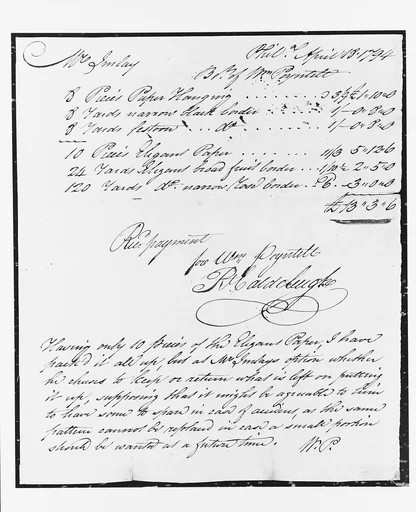 Phila. April 18. 1794
Mr Imlay
Bot. of Wm Poyntell
8 Pieces Paper Hanging . . . . . 3/9 1"10"0
8 Yards narrow black border . . . . 1/-0"8"0
8 Yards festoon . . . do . . . . 1/-0"8"0
10 Pieces Elegant Paper . . . . . . 11/3 5"12"6
24 Yards Elegant broad fruit border . . . 1/10½ 2"5"0
120 Yards do. narrow Rose border. 6. 3"0"0
£13"3"6
Rec. payment
for Wm Poyntell
Having only 10 Pieces of the Elegant Paper, I have
pack'd it all up, but at Mr Imlays option whether
he chuses to keep or return what is left on putting
it up, supposing that it might be agreeable to him
to have some to spare in case of accident, as the same
pattern cannot be replaced in case a small portion
should be wanted at a future time. W.P.